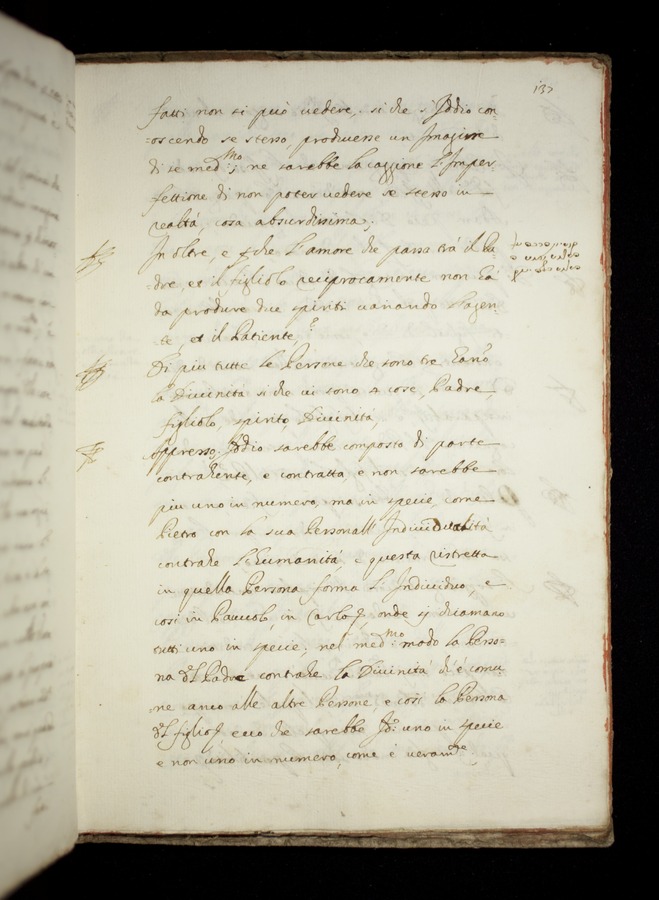 137
fatti non si può vedere, si che s'Iddio con-
=oscendo se stesso, producesse un Imagine
di se med:mo, ne sarebbe la caggione l'Imper-
fettione di non poter vedere se stesso in
realtá, cosa absurdissima;
In oltre, e che l'amore che passa trá il Pa-
=dre, et il figliolo reciprocamente non há
da produre due spiriti variando l'agen-
te et il Patiente?
Di piu tutte le Persone che sono tre hanno
la Divinitá si che vi sono 4 cose, Padre
figliolo, spirito, Divinitá,
Appresso, Iddio sarebbe composto di parte
contrahente, e contratta, e non sarebbe
piu uno in numero, ma in specie, come
Pietro con la sua Personal Individualitá
contrahe l'humanitá, e questa ristretta
in quella Persona forma l'Individuo, e
cosi in Pauolo, in Carlo, onde si chiamano
tutti uno in specie, nel med:mo modo la Perso=
na del Padre contrahe la Divinitá ch'é comu-
=ne anco alle altre Persone, e cosi la Persona
del figlio, ecco che sarebbe Idio uno in specie
e non uno in numero, come é veramte